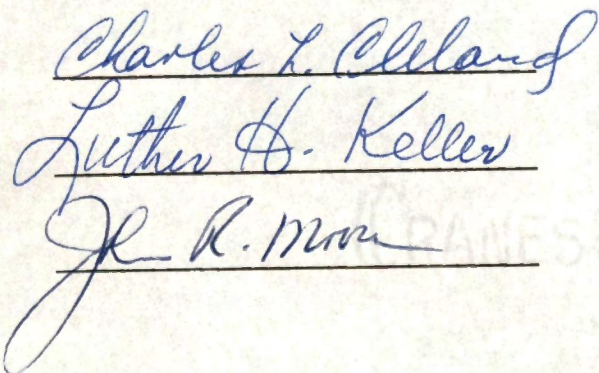 Charles L. Cleland
Luther H. Keller
John R. Moore
CRANES